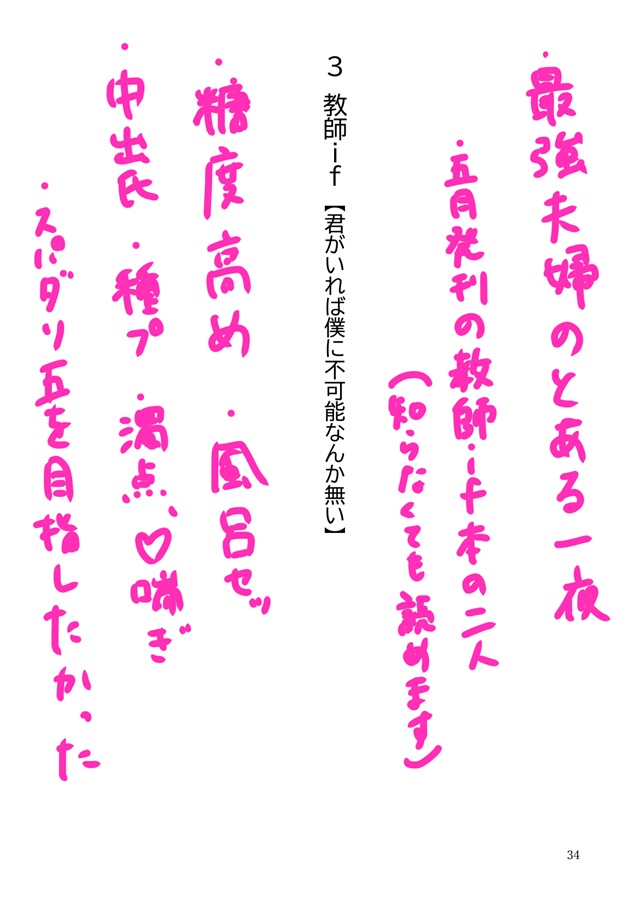 ・最強夫婦のとある一夜
・五月発刊の教師if本の二人
(知らなくても読めます)
3 教師if【君がいれば僕に不可能なんか無い】
・糖度高め ・風呂セッ
・中出氏 ・種プ ・濁点、♡喘ぎ
・スパダリ五を目指したかった
34